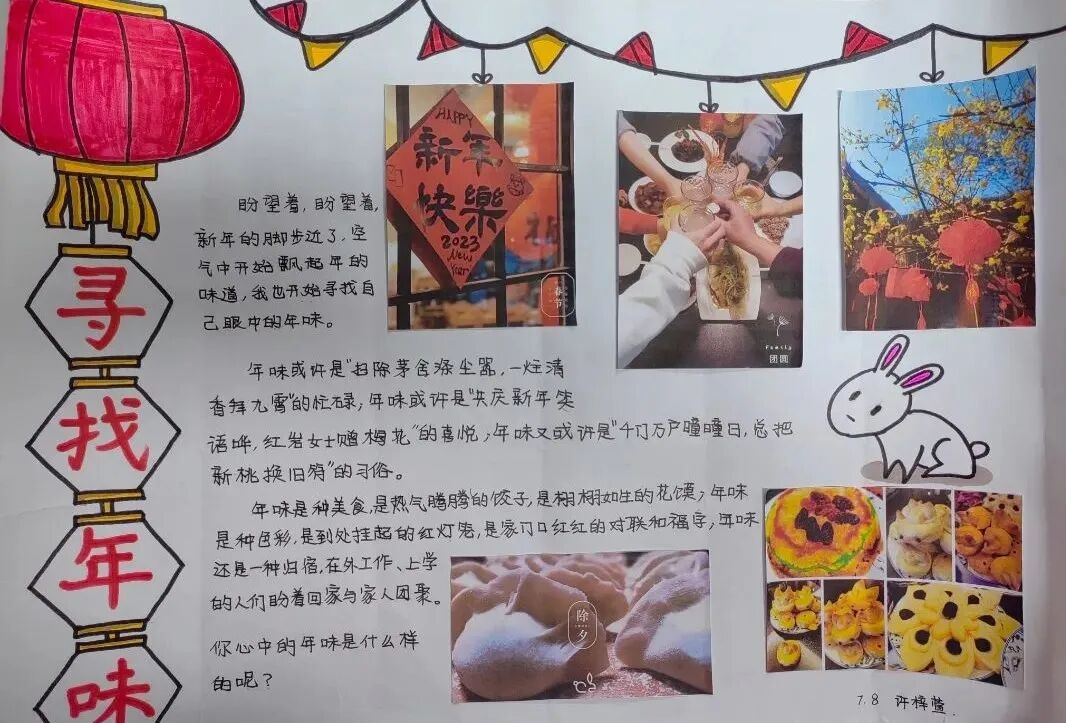 寻
找
年
味
盼望着,盼望着,
新年的脚步近了,空
气中开始飘起年的
味道,我也开始寻找自
己眼中的年味。
年味或许是"扫除茅舍涤尘嚣,一炷清
香拜九霄"的忙碌,年味或许是"共庆新年笑
语哗,红岩女士赠梅花"的喜悦,年味又或许是"千门万户曈曈日,总把
新桃换旧符"的习俗。
年味是种美食,是热气腾腾的饺子,是栩栩如生的花馍;年味
是种色彩,是到处挂起的红灯笼,是家门口红红的对联和福字;年味
还是一种归宿,在外工作、上学
的人们盼着回家与家人团聚。
你心中的年味是什么样
的呢?
HAPPY
新年
快樂
2023
New
Year
春节
Family
团圆
除夕
7.8 许梓蓝.